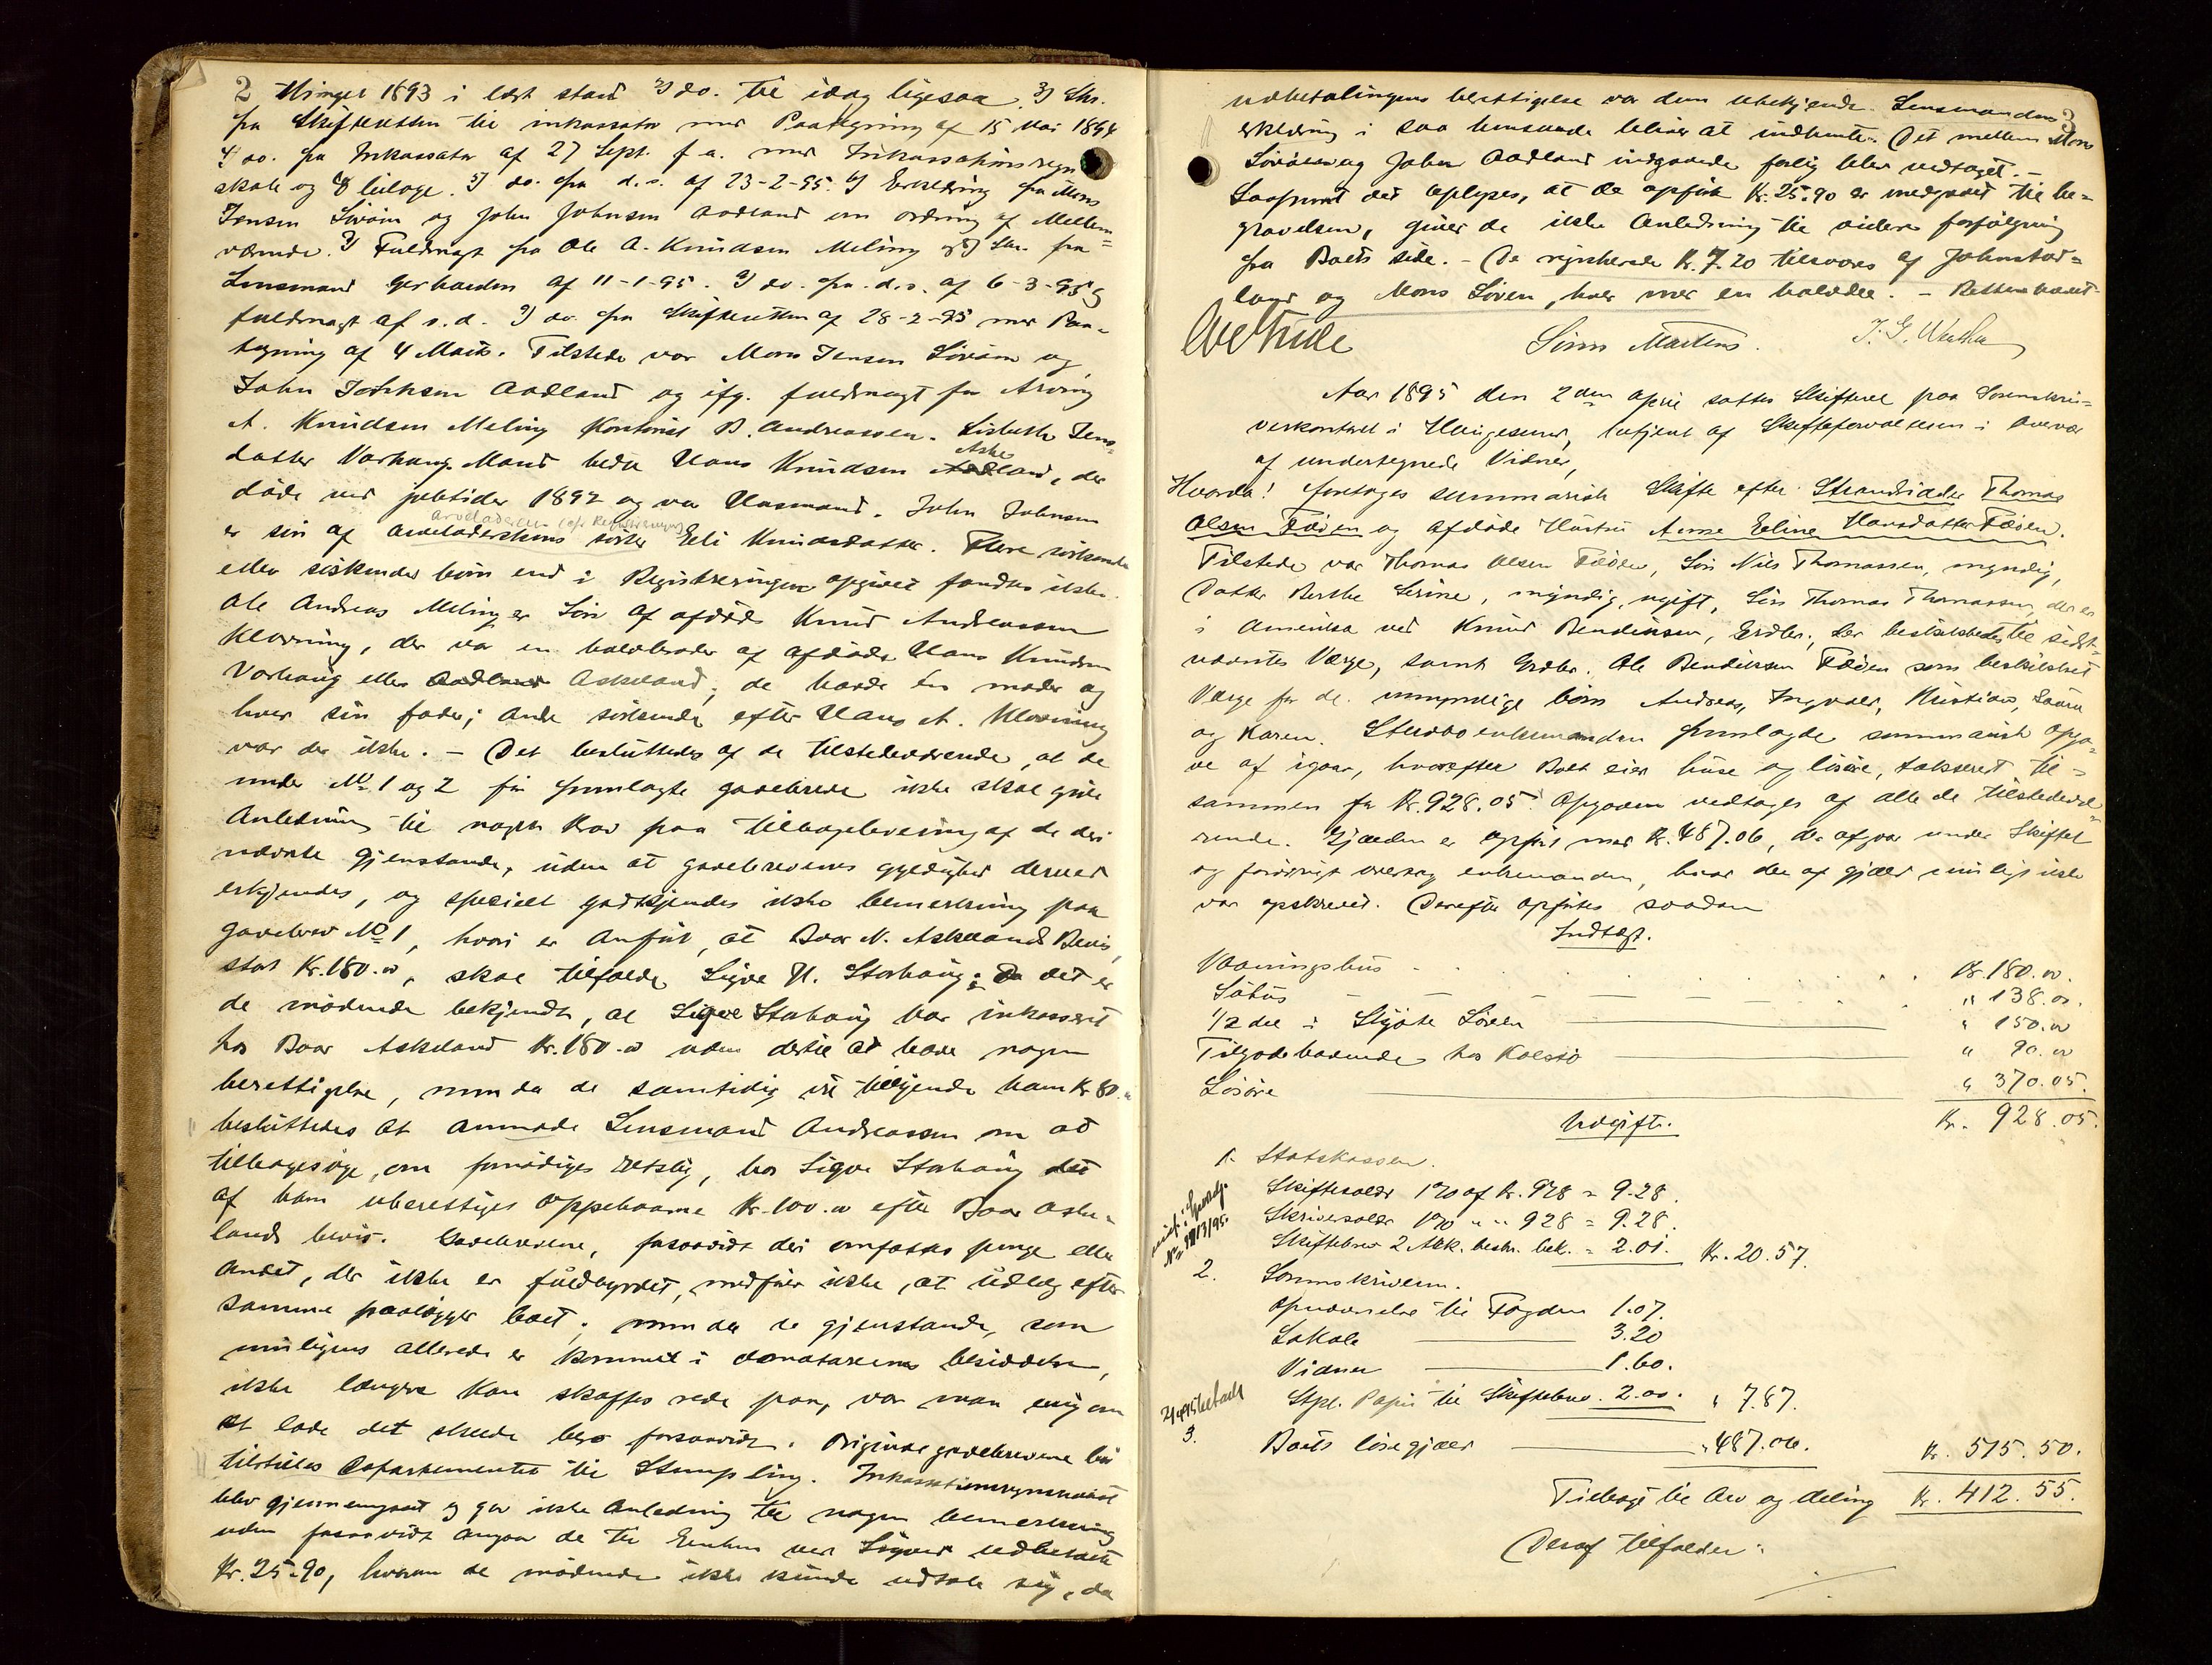 2 thinget 1893 i lagt stand 2) do. til idag ligesaa. 3) Skr.
fra Skifteretten til inkassator med Paategning af 15 Mai 1894
4) do. fra Inkassator af 27 Sept. f. a. med Inkassationsregn
skab og 8 bilage. 5) do. fra d.s. af 23-2-95. 6) Erklæring fra Mons
Jensen Liven og John Johnsen Aadland om ordning af Mellem=
værende. 7) Fuldmagt fra Ole A. Knudsen Meling og 8) Skr. fra
Lensmand Gerhardsen af 11-1-95. 9) do. fra d.s. af 6-3-95 og
fuldmagt af s.d. 9) do. fra Skifteretten af 28-2-95 med Paa=
tegning af 4 Marts. Tilstede var Mons Jensen og
John Johnsen Aadland og ifg. fuldmagt fra Arving
A. Knudsen Meling Kontorist B. Andreassen. Lisbeth Jens=
datter Varhaug Mand hedte Hans Knudsen Aske Aadland, der
døde ved juletider 1892 og var Husmand. John Johnsen
arveladeren (cfr Registreringen)
er søn af arveladerskens søster Eli Knudsdatter. Flere søskende
eller søskendes børn end i Registreringen opgivet fandtes ikke.
Ole Andreas Meling er Søn af afdøde Knud Andreassen
Klovning, der var en halvbroder af afdøde Hans Knudsen
Varhaug eller Aadland Askeland; de havde en moder og
hver sin fader; andre søskende efter Hans A. Klovning
var der ikke. — Det besluttedes af de tilstedeværende, at de
under No 1 og 2 før fremlagte gavebreve ikke skal give
Anledning til nogen krav paa tilbagelevering af de deri
nævnte gjenstande, uden at gavebrevenes gyldighed derved
erkjendes, og specielt godkjendes ikke bemerkning paa
gavebrev No 1, hvori er anført, at Baar N. Askelands Bevis,
stort Kr. 180.00, skal tilfalde Sigve H. Storhaug; Da det er
de mødende bekjendt, at Sigve Storhaug har inkasseret
hos Baar Askeland Kr. 180.00 uden dertil at have nogen
berettigelse, men da de samtidig vil tilkjende ham Kr 80.00
besluttedes at anmode Lensmand Andreassen om at
tilbagesøge, om fornødiges retslig, hos Sigve Storhaug det
af ham uberettiget oppebaarne Kr. 100.00 efter Baar Aske=
lands bevis. Gavebrevene, forsaavidt der omfattes penge eller
andet, der ikke er fuldbyrdet, medfører ikke, at udlæg efter
samme paalægges boet; men da de gjenstande, som
muligens allerede er kommet i donatarernes besiddelse,
ikke længere kan skaffes rede paa, var man enig om
at lade det skede bero forsaavidt. Originale gavebrevene bør
tilstilles Departementet til Stempling. Inkassationsregnskabet
blev gjennemgaaet og gav ikke Anledning til nogen bemerkning
uden forsaavidt angaar de til Enken ved Sigved udbetalte
Kr. 25-90, hvorom de mødende ikke kunde udtale sig, da
3
udbetalingens berettigelse var dem ubekjendt. Lensmandens
erklæring i saa henseende bliver at indhente. Det mellem Mons
og John Aadland indgaaede forlig blev vedtaget. —
Saafremt det oplyses, at de opførte Kr. 25.90 er medgaaet til be=
gravelsen, giver de ikke Anledning til videre forfølgning
fra Boets side. — De registrerede Kr. 7.20 tilsvares af John Aad=
land og Mons Liven, hver med en halvdel. — Retten hævet
Søren Martens.
Aar 1895 den 2den April sattes Skifteret paa Sorenskri=
verkontoret i Haugesund, betjent af Skifteforvalteren i Overvær
af undertegnede Vidner,
Hvorda! foretoges summarisk Skifte efter Strandsidder Thomas
Olsen Fæøen og afdøde Hustru Anne Eline Hansdatter Fæøen.
Tilstede var Thomas Olsen Fæøen, Søn Nils Thomassen, myndig,
Datter Berthe Serine, myndig, ugift, Søn Thomas Thomassen, der er
i Amerika ved Knud Bendiksen, Grdbr., der beskikkedes til sidst=
nævntes Værge, samt Grdbr. Ole Bendiksen Fæøen som beskikket
Værge for de umyndige børn Andreas, Ingvald, Kristian, Laura
og Karen. Stervboenkemanden fremlagde summarisk Opga=
ve af igaar, hvorefter Boet eier huse og løsøre, takseret til=
sammen for Kr. 928.05. Opgaven vedtages af alle de tilstedevæ=
rende. Gjælden er opført med Kr. 487.06, der afgaar under Skiftet
og forøvrigt overtog enkemanden, hvad der af gjæld muligt ikke
var opskrevet. Derefter opførtes saadan
Indtægt.
Vaaningshus . . . . . Kr. 180.00.
Søhus — — — — — " 138.00.
1/2 del i Skjøte Liven — " 150.00
Tilgodehavende hos Kolstø — " 90.00
Løsøre — " 370.05.
Kr. 928.05.
Udgift.
1. Statskassen.
Skiftesold 1% af Kr. 928 = 9.28.
Skriversold 1% " " 928 = 9.28.
Skiftebrev 2 Mrk. beskr. bek. = 2.01. Kr. 20.57.
2. Sorenskriveren.
til Fogden 1.07.
Lokale — 3.20
Vidner — 1.60.
Stpl. Papir til Skiftebrev. 2.00. " 7.87.
3. Boets løsegjæld — " 487.06. Kr. 515.50.
Tilbage til Arv og deling Kr. 412.55.
Deraf tilfalder: